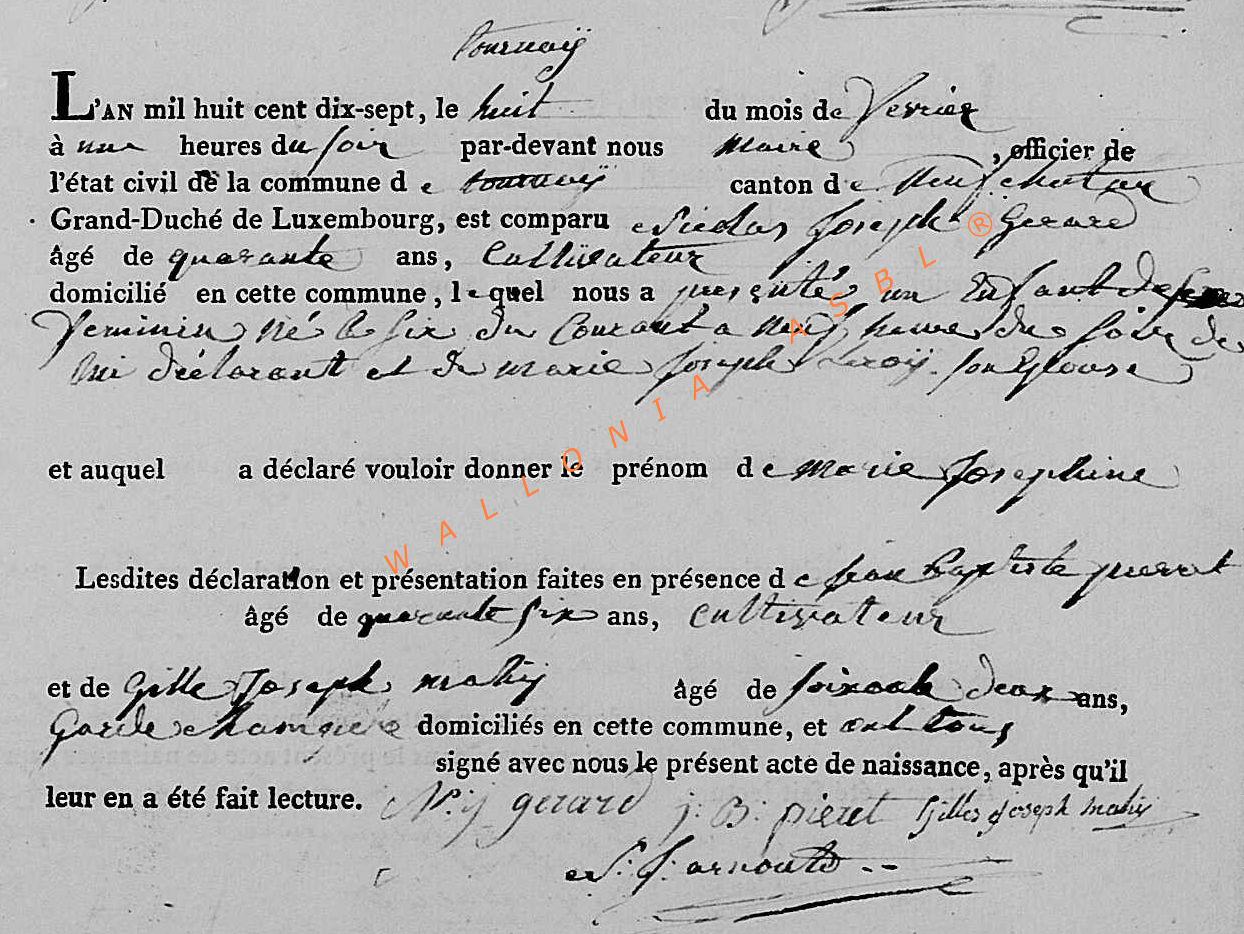 tournaÿ
L'AN mil huit cent dix-sept, le huit du mois de fevrier
à une heures du soir par-devant nous maire , officier de
l'état civil de la commune de tournaÿ canton de Neufchateau
Grand-Duché de Luxembourg, est comparu Nicolas Joseph Gerard
âgé de quarante ans, Cultivateur
domicilié en cette commune, lequel nous a presenté un Enfant de sexe
feminin né le six du Courant a neuf heure du soir de
lui déclarant et de marie joseph Leroÿ son Epouse
et auquel a déclaré vouloir donner le prénom de marie Josephine
Lesdites déclaration et présentation faites en présence de jean Baptiste pierret
âgé de quarante six ans, cultivateur
et de Gille Joseph mahÿ âgé de soixante deux ans,
Garde champetre domiciliés en cette commune, et ont tous
signé avec nous le présent acte de naissance, après qu'il
leur en a été fait lecture. N. j gerard j. B. pieret Gilles joseph mahÿ
arnould
WALLONIA ASBL ®